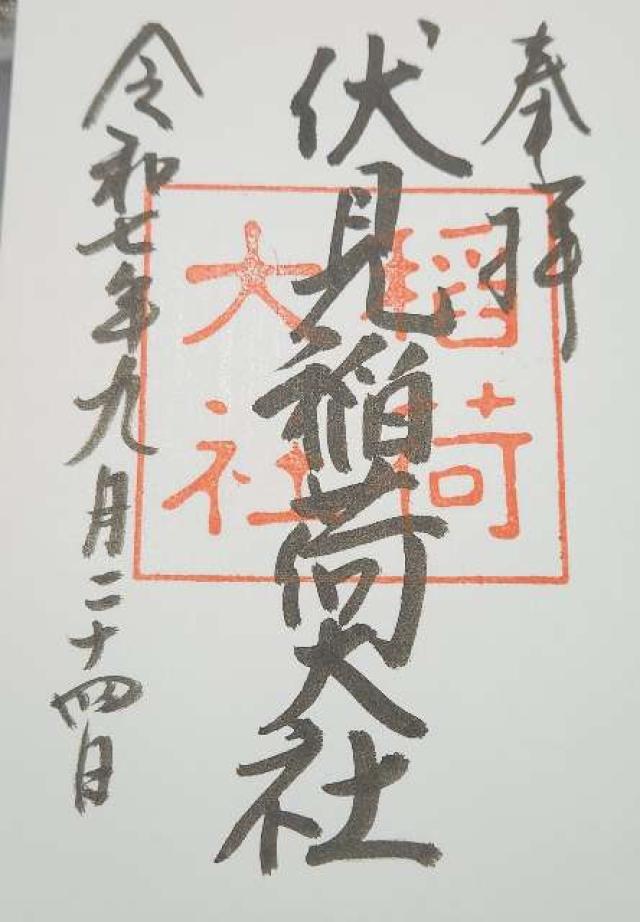 奉拝
伏見稲荷大社
稲荷
大社
令和七年九月二十四日